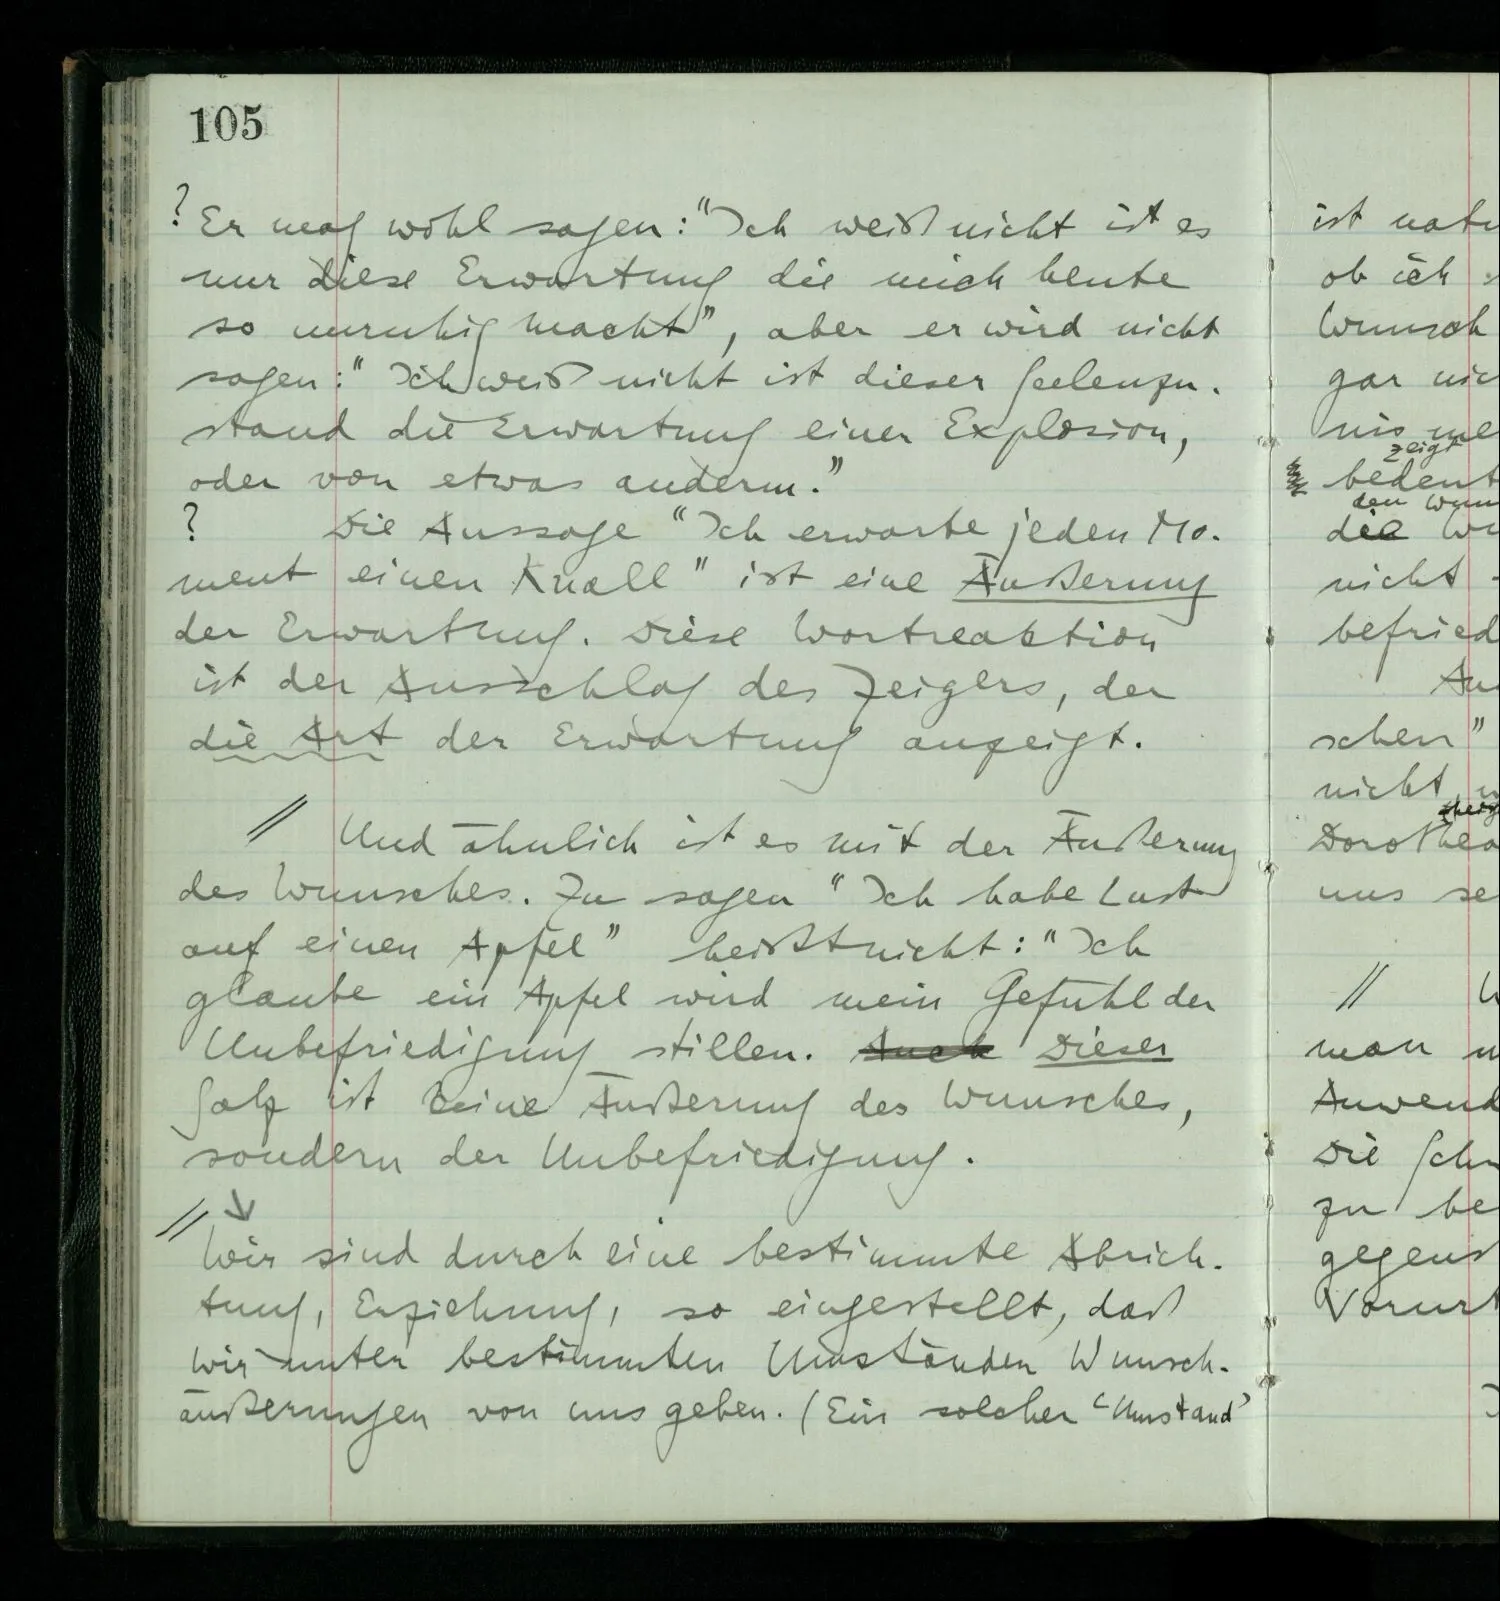 105
? Er mag wohl sagen: "Ich weiß nicht ist es
nur diese Erwartung die mich heute
so unruhig macht", aber er wird nicht
sagen: "Ich weiß nicht ist dieser Seelenzu-
stand die Erwartung einer Explosion,
oder von etwas anderm."
? Die Aussage "Ich erwarte jeden Mo-
ment einen Knall" ist eine Äußerung
der Erwartung. Diese Wortreaktion
ist der Ausschlag des Zeigers, der
die Art der Erwartung anzeigt.
// Und ähnlich ist es mit der Äußerung
des Wunsches. Zu sagen "Ich habe Lust
auf einen Apfel" heißt nicht: "Ich
glaube ein Apfel wird mein Gefühl der
Unbefriedigung stillen. Auch Dieser
Satz ist keine Äußerung des Wunsches,
sondern der Unbefriedigung.
// ↘
Wir sind durch eine bestimmte Abrich-
tung, Erziehung, so eingestellt, daß
wir unter bestimmten Umständen Wunsch-
äußerungen von uns geben. (Ein solcher 'Umstand'
ist natu
ob ich
Wunsch
gar nic
nis me
zeigt
bedeut
den Wun
die Wu
nicht
befried
schen"
nicht
Dorothea
uns se
//
man
Anwend
Die Sch
zu be
gegens
Vorurt